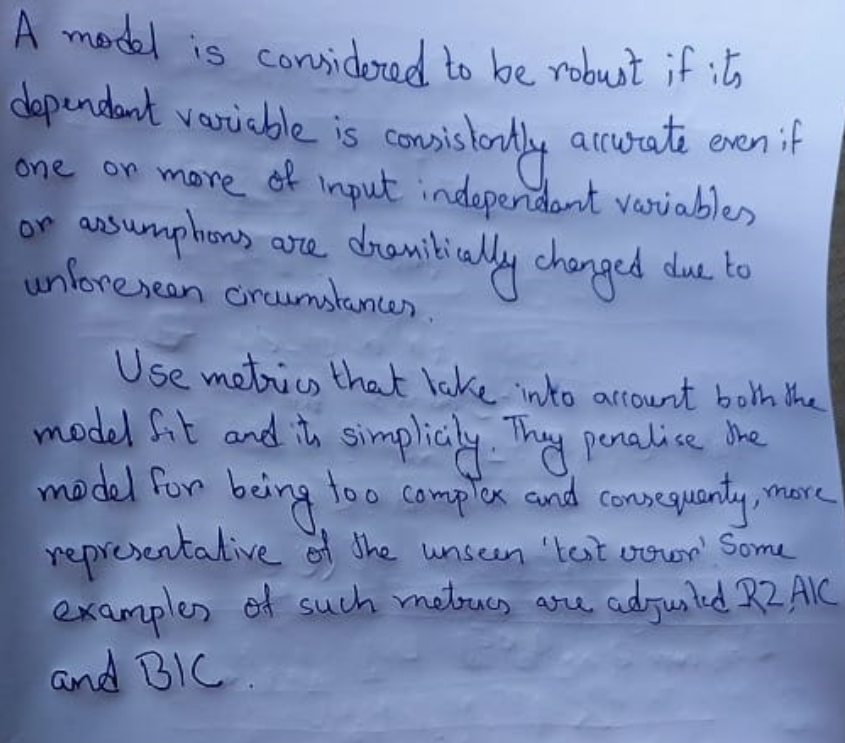 A model is considered to be robust if its
dependant variable is consistently accurate even if
one or more of input independant variables
or assumptions are dramitically changed due to
unforeseen circumstances.
Use metrics that take into account both the
model fit and its simplicity. They penalise the
model for being too complex and consequenty, more
representative of the unseen 'test error' Some
examples of such metrics are adjusted R2, AIC
and BIC.